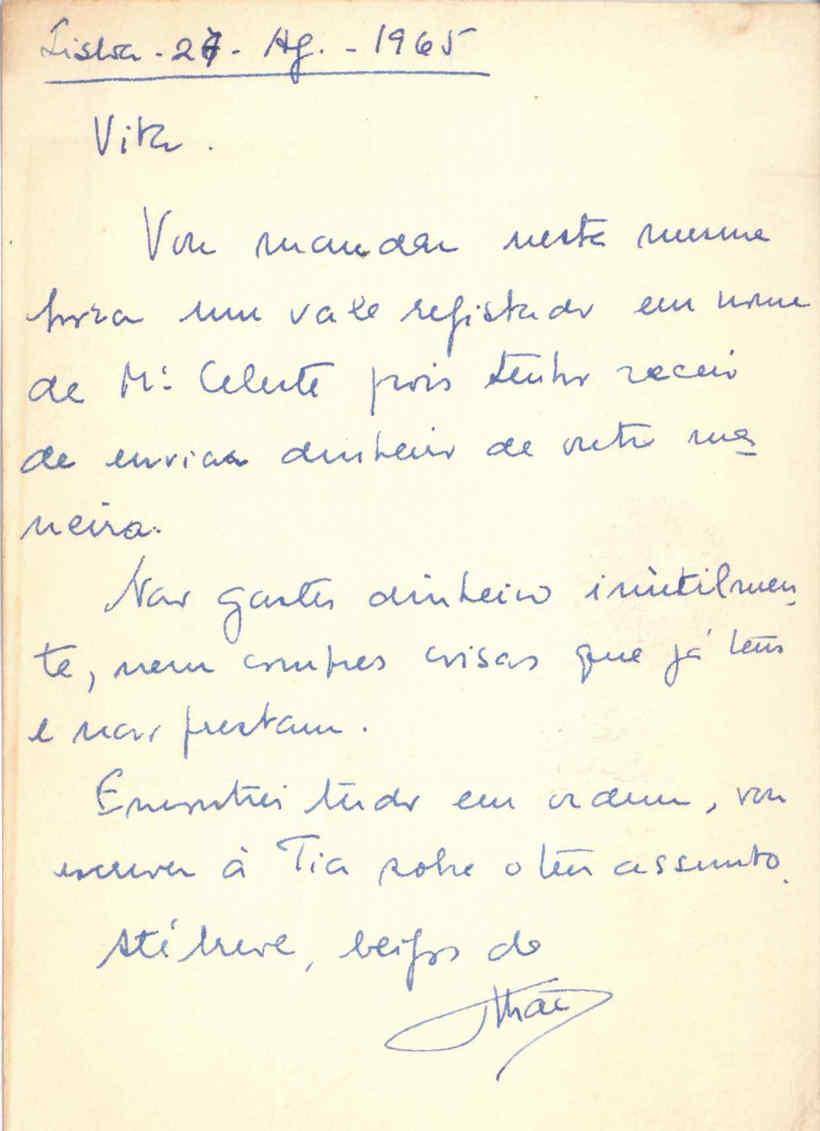 Lisboa - 27 - Ag. - 1965
Vita.
Vou mandar nesta mesma
hora um vale registado em nome
de Mª Celeste pois tenho receio
de enviar dinheiro de outra ma
neira.
Não gastes dinheiro inùtilmen
te, nem compres coisas que já tens
e não prestam.
Encontrei tudo em ordem, vou
escrever à Tia sobre o teu assunto.
Até breve, beijos do